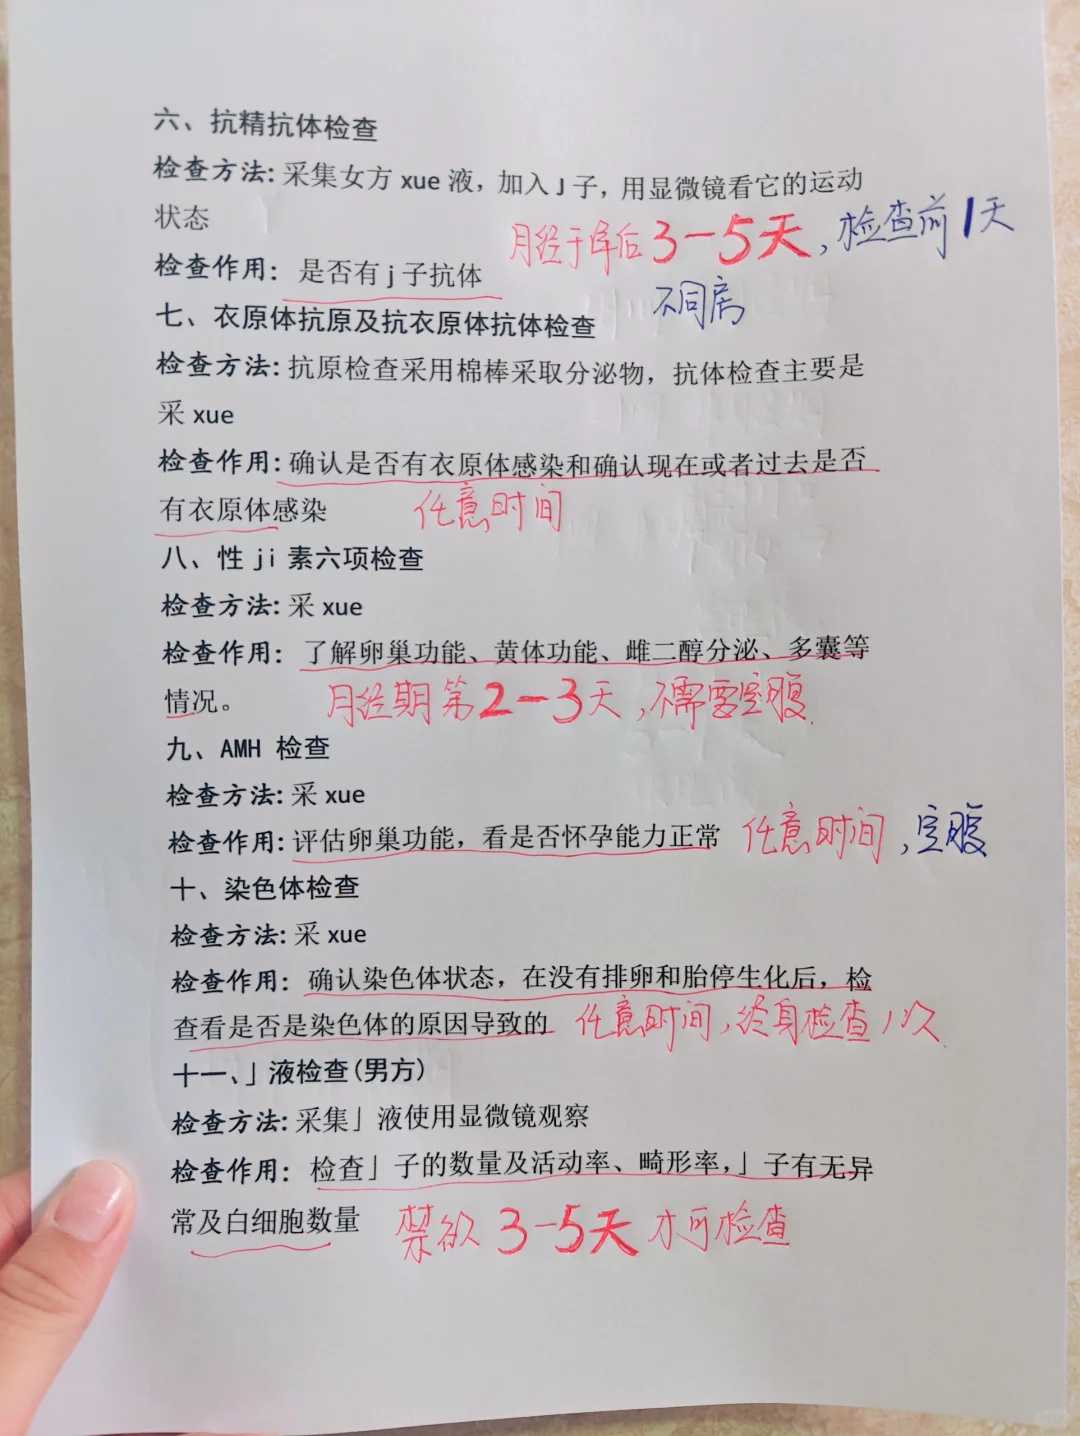 六、抗精抗体检查
检查方法: 采集女方 xue 液，加入 J 子，用显微镜看它的运动
状态
月经干净后3-5天，检查前1天
不同房
检查作用: 是否有 j 子抗体
七、衣原体抗原及抗衣原体抗体检查
检查方法: 抗原检查采用棉棒采取分泌物，抗体检查主要是
采 xue
检查作用: 确认是否有衣原体感染和确认现在或者过去是否
有衣原体感染 任意时间
八、性 ji 素六项检查
检查方法: 采 xue
检查作用: 了解卵巢功能、黄体功能、雌二醇分泌、多囊等
情况。 月经期第2-3天，不需要空腹
九、AMH 检查
检查方法: 采 xue
检查作用: 评估卵巢功能，看是否怀孕能力正常 任意时间，空腹
十、染色体检查
检查方法: 采 xue
检查作用: 确认染色体状态，在没有排卵和胎停生化后，检
查看是否是染色体的原因导致的 任意时间，终身检查1次
十一、」液检查(男方)
检查方法: 采集」液使用显微镜观察
检查作用: 检查」子的数量及活动率、畸形率，」子有无异
常及白细胞数量 禁欲3-5天才可检查